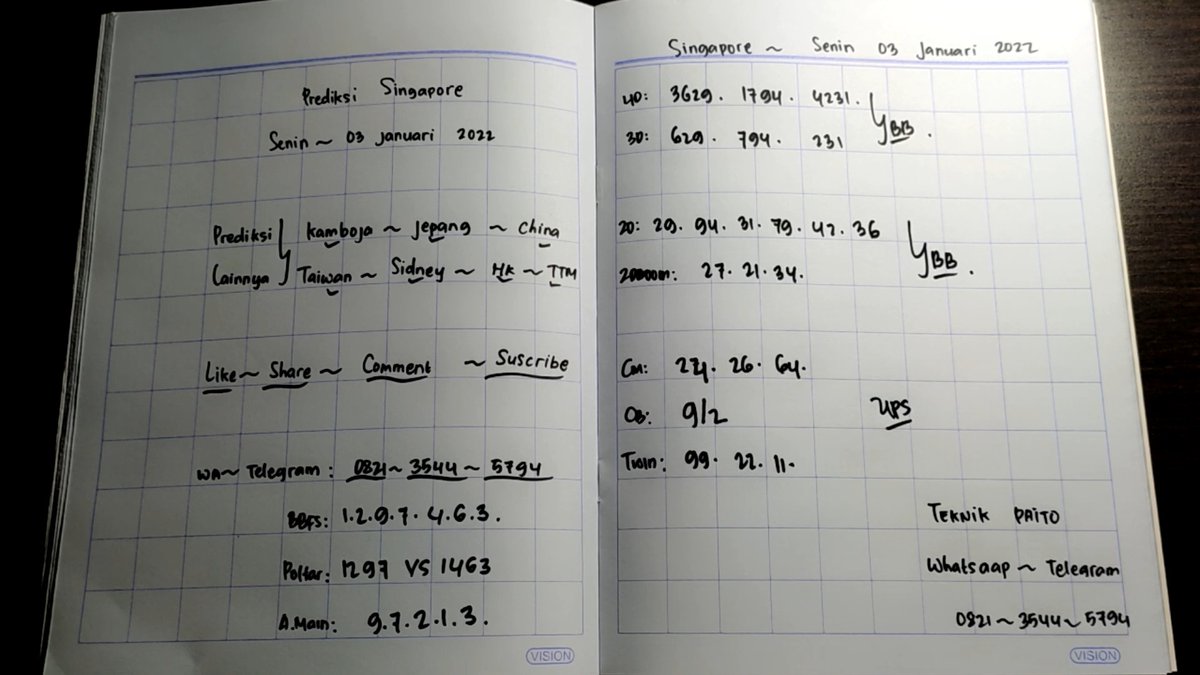 Prediksi Singapore
Senin ~ 03 Januari 2022
Prediksi Kamboja ~ Jepang ~ China
Lainnya Taiwan ~ Sidney ~ HK ~ TTM
Like ~ Share ~ Comment ~ Suscribe
WA ~ Telegram : 0821 ~ 3544 ~ 5794
BBFS: 1.2.9.7.4.6.3.
Poltar: 1297 VS 1463
A.Main: 9.7.2.1.3.
VISION
Singapore ~ Senin 03 Januari 2022
4D: 3629. 1794. 4231.
3D: 629. 794. 231
BB.
2D: 29. 94. 31. 79. 42. 36
27. 21. 34.
BB.
Cm: 26. 64.
CB: 9/2
UPS
Twin: 99. 22. 11.
TEKNIK PAITO
Whatsaap ~ Telegram
0821 ~ 3544 ~ 5794
VISION